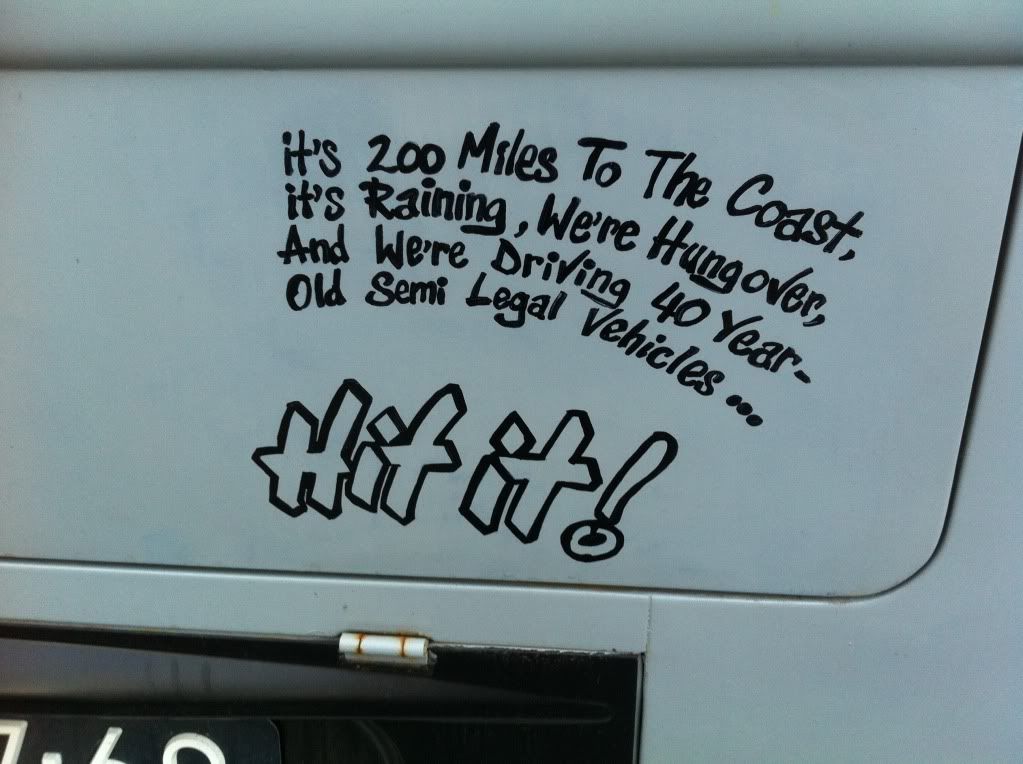 it's 200 Miles To The Coast,
it's Raining, We're Hungover,
And We're Driving 40 Year-
Old Semi Legal Vehicles...
Hit it!